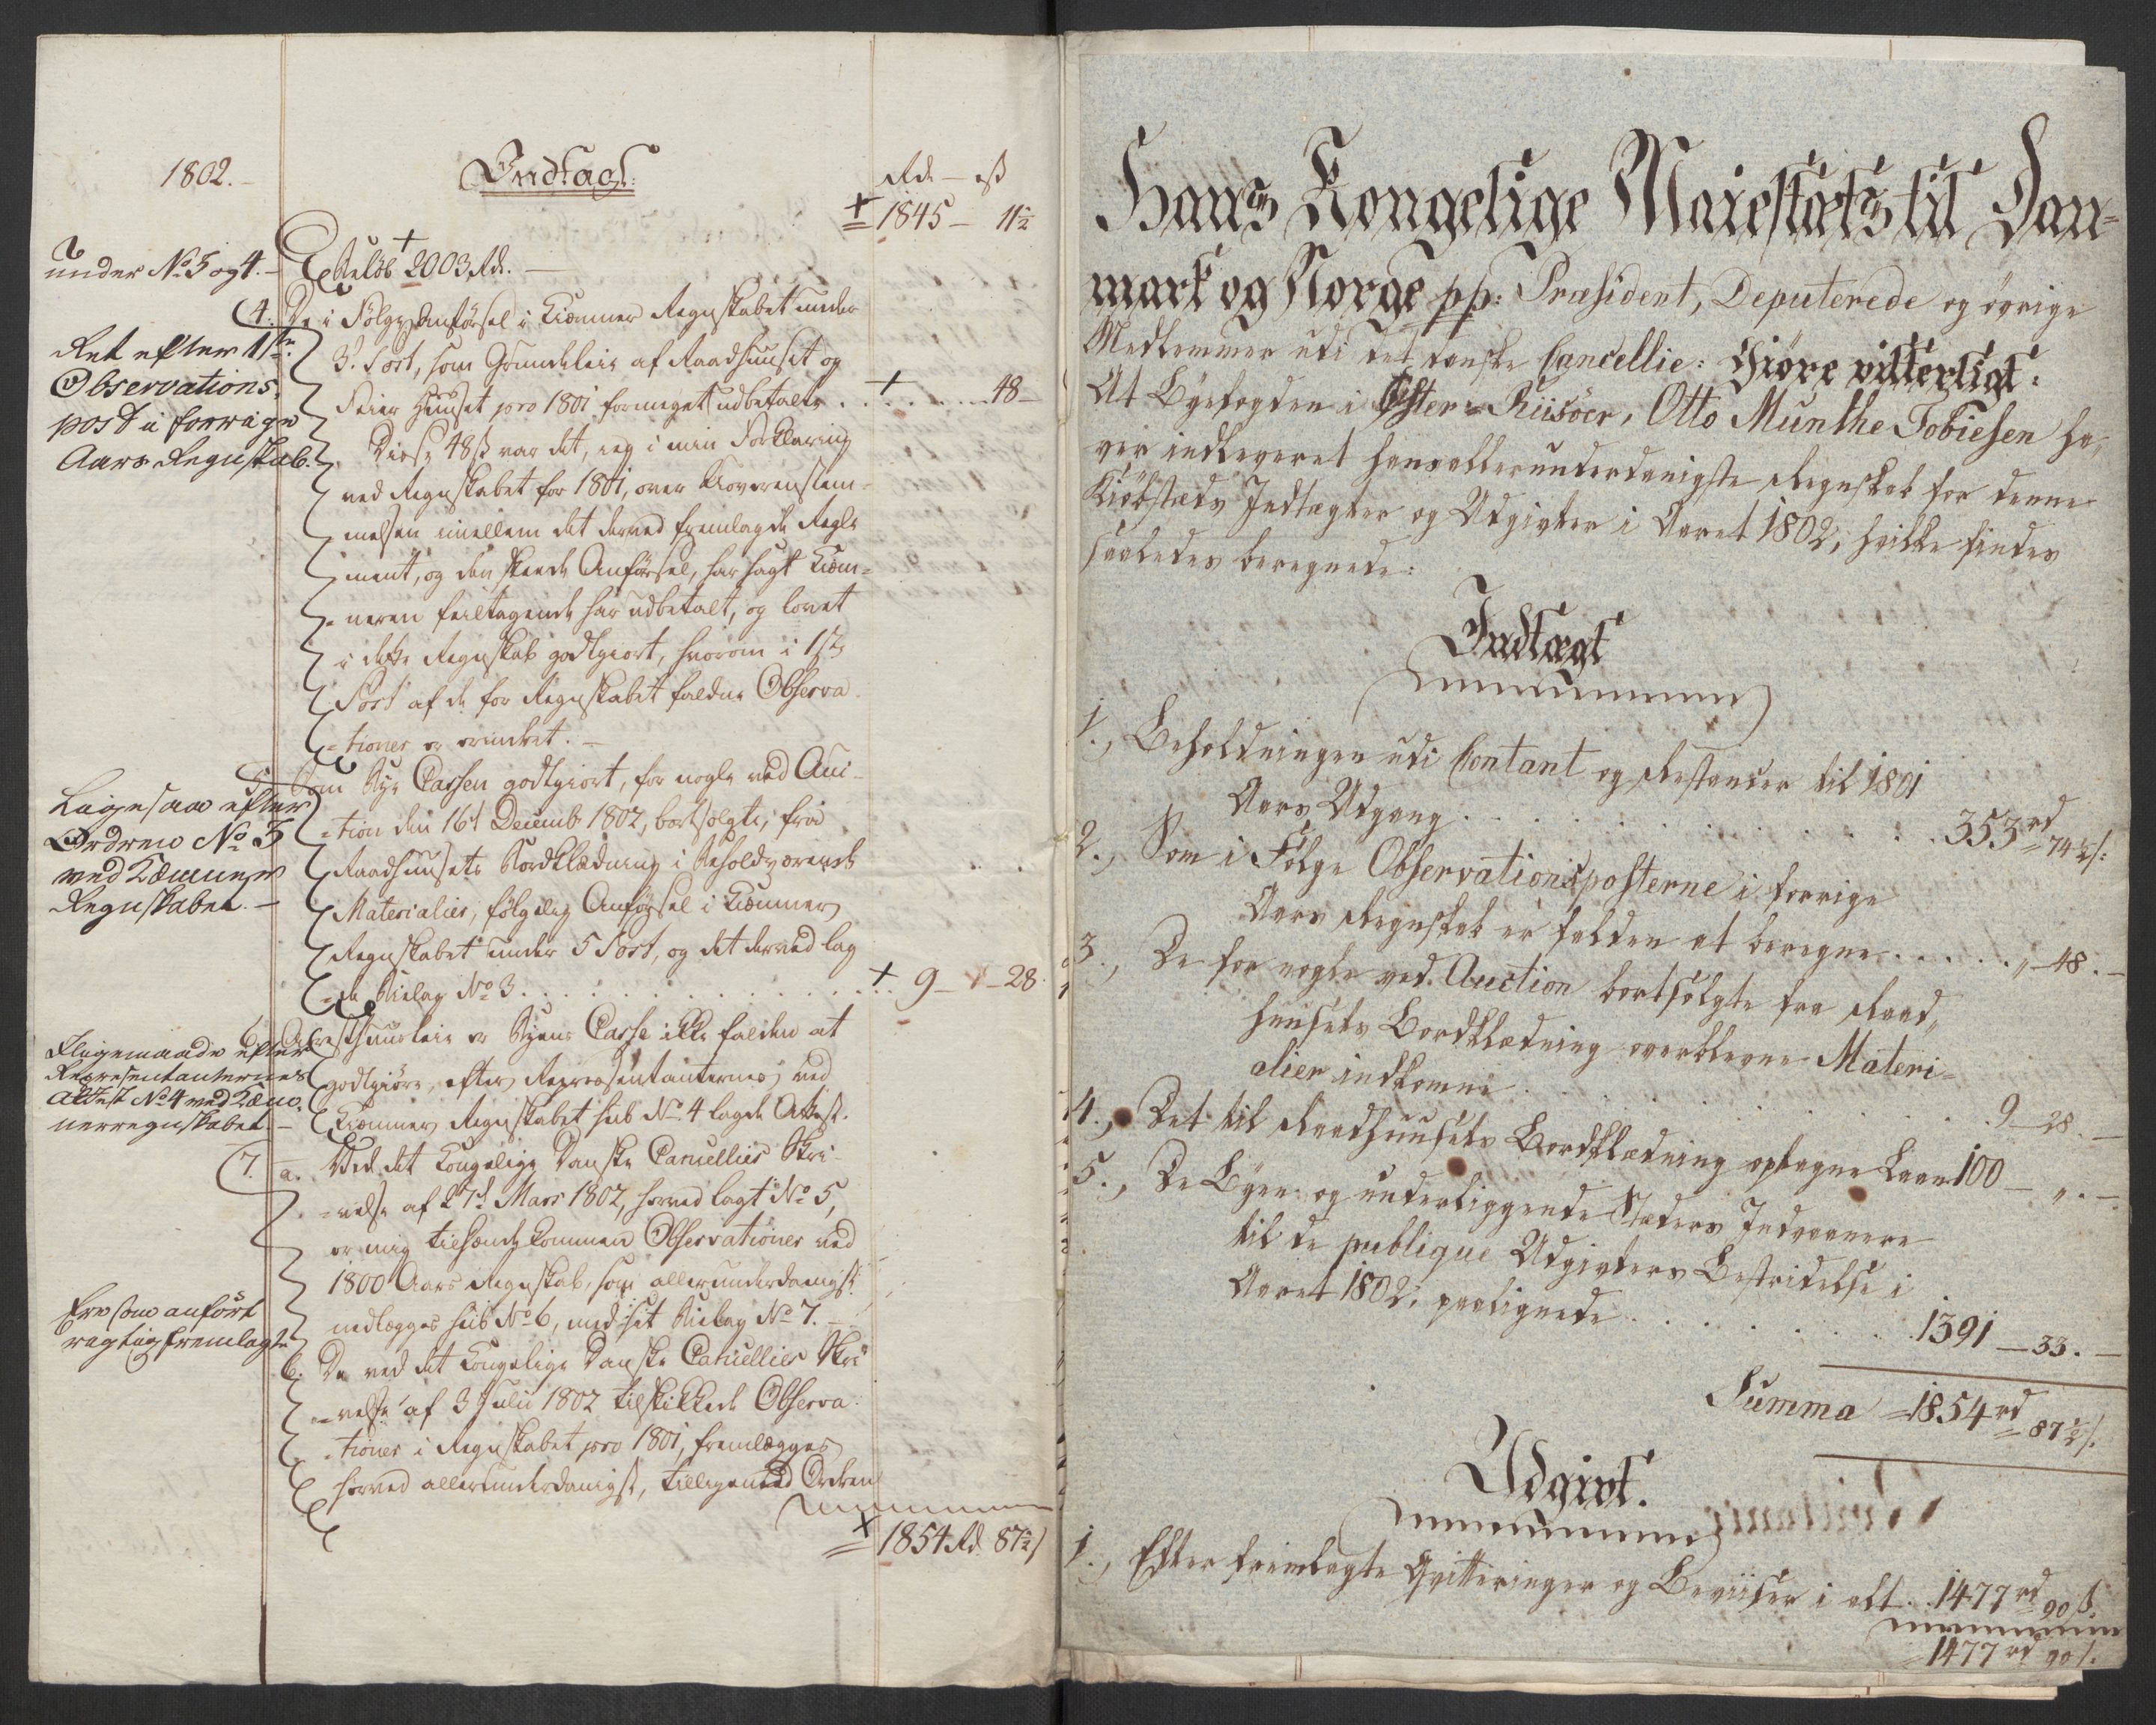 1802.
Indtægt:
Rd. — ß
1845 — 11½
under No. 3 og 4. —
Beløb 2003 Rd. —
4. De i Følge Anførsel i Kiæmner Regnskabet under
3. Post, som Grundeleie af Raadhuuset og
Huuset pro 1801 formeget udbetalte . . . . . . 48 —
Ret efter 1ste
Observations-
post i forrige
Aars Regnskab. —
Disse 48 ß var det, ieg i min Forklaring
ved Regnskabet for 1801, over Uoverenstem-
melsen imellem det derved fremlagde Regle-
ment, og den skeede Anførsel, har sagt Kiæm-
neren feiltagende har udbetalt, og lovet
i dette Regnskab godtgiort, hvorom i 1ste
Post af de for Regnskabet faldne Observa-
tioner er erindret. —
5. Som Bye Cassen godtgiort, for nogle ved Auc-
tion den 16d Decembr 1802, bortsolgte, fra
Raadhuusets Bordklædning i Behold værende
Materialier, følgelig Anførsel i Kiæmner
Regnskabet under 5 Post, og det derved lag-
de Bielag No 3 . . . . . . . . . 9 — 28.
Ligesaa efter
Ordren No 3
ved Kæmner
Regnskabet. —
6. Arresthuusleie er Byens Casse ikke falden at
godtgiøre, efter Repræsentanternes ved
Kiæmner Regnskabet sub No 4 lagde Attest.
Ligemaade efter
Repræsentanternes
Attest No 4 ved Kæm-
nerregnskabet. —
7. a. Ved det Kongelige Danske Cancellies Skri-
velse af 27d Mars 1802, herved lagt No 5,
er mig tilhænde kommen Observationer ved
1800 Aars Regnskab, som allerunderdanigst
nedlægges sub No 6, med sit Bielag No 7. —
Ere som anført
rigtig fremlagte
b. De ved det Kongelige Danske Cancellies Skri-
velse af 3 Julii 1802 tilskikkede Observa-
tioner i Regnskabet pro 1801, fremlægges
herved allerunderdanigst, tilligemed Ordren
1854 Rd 87½ ß
Hans Kongelige Maiestæts til Dan-
mark og Norge pp: Præsident, Deputerede og øvrige
Medlemmer udi det danske Cancellie: Giøre vitterligt:
At Byefogden i Øster-Riisöer, Otto Munthe Tobiesen ha-
ver indleveret hans allerunderdanigste Regnskab for denne
Kiøbstæds Indtægter og Udgivter i Aaret 1802, hvilke findes
saaledes beregnede:
Indtægt
1., Beholdningen udi Contant og Restancer til 1801
Aars Udgang . . . . . . . . . 353 rd 74½ ß.
2., Som i Følge Observationsposterne i forrige
Aars Regnskab er falden at beregne . . . . . „ — 48. —
3., De for nogle ved Auction bortsolgte fra Raad-
huusets Bordklædning overblevne Materi-
alier indkomne . . . . . . . . 9 — 28. —
4., Det til Raadhuusets Bordklædning optagne Laan 100 — „. —
5., De Byen og underliggende Stæders Indvaanere
til de publique Udgivters Bestridelse i
Aaret 1802, paalignede . . . . . . . 1391 — 33. —
Summa = 1854 rd 87½ ß.
Udgivt.
1., Efter fremlagte Qvitteringer og Beviiser i alt . . 1477 rd 90 ß.
1477 rd 90 ß.